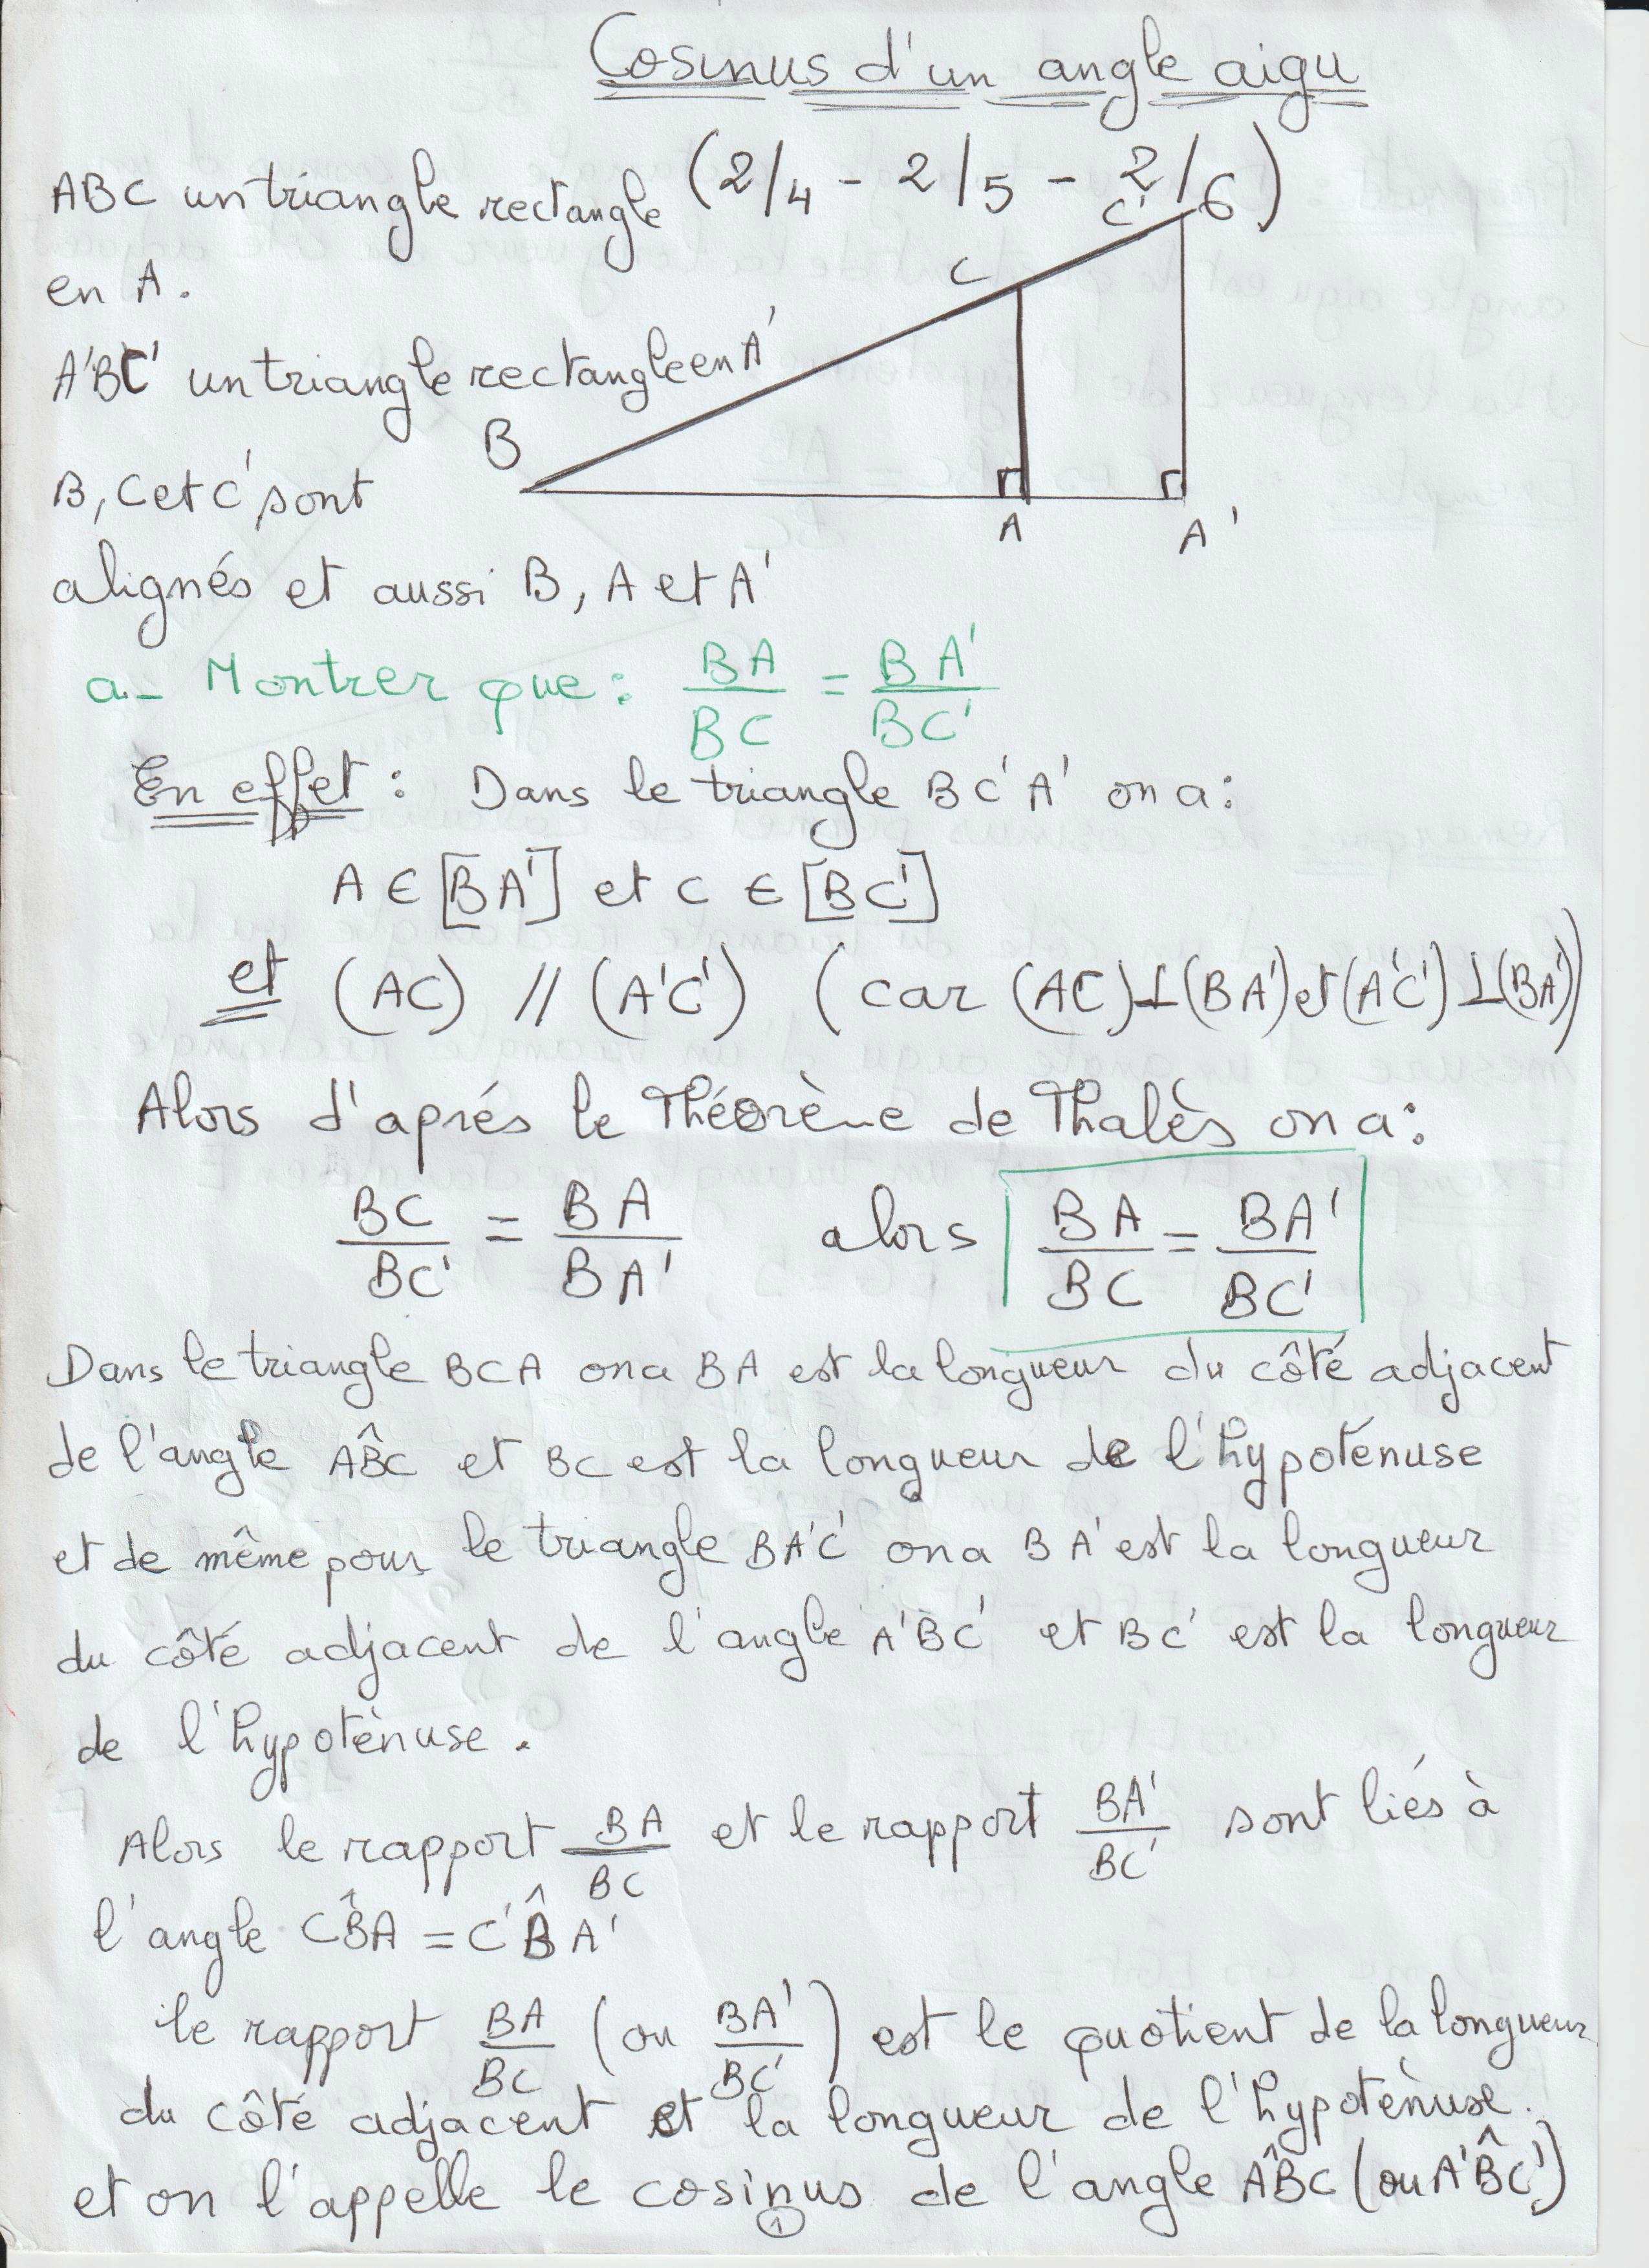 Cosinus d'un angle aigu
ABC un triangle rectangle (2/4 - 2/5 - 2/6)
en A.
A'BC' un triangle rectangle en A'
B, C et C' sont
alignés et aussi B, A et A'
B
C
C'
A
A'
a- Montrer que : BA/BC = BA'/BC'
En effet : Dans le triangle BC'A' on a :
A ∈ [BA'] et C ∈ [BC']
et (AC) // (A'C') (car (AC)⊥(BA') et (A'C')⊥(BA'))
Alors d'aprés le Théorème de Thalès on a :
BC/BC' = BA/BA' alors BA/BC = BA'/BC'
Dans le triangle BCA on a BA est la longueur du côté adjacent
de l'angle AB̂C et BC est la longueur de l'hypoténuse
et de même pour le triangle BA'C' on a BA' est la longueur
du côté adjacent de l'angle A'BC' et BC' est la longueur
de l'hypoténuse.
Alors le rapport BA/BC et le rapport BA'/BC' sont liés à
l'angle CB̂A = C'B̂A'
le rapport BA/BC (ou BA'/BC') est le quotient de la longueur
du côté adjacent et la longueur de l'hypoténuse.
et on l'appelle le cosinus de l'angle AB̂C (ou A'B̂C')
1